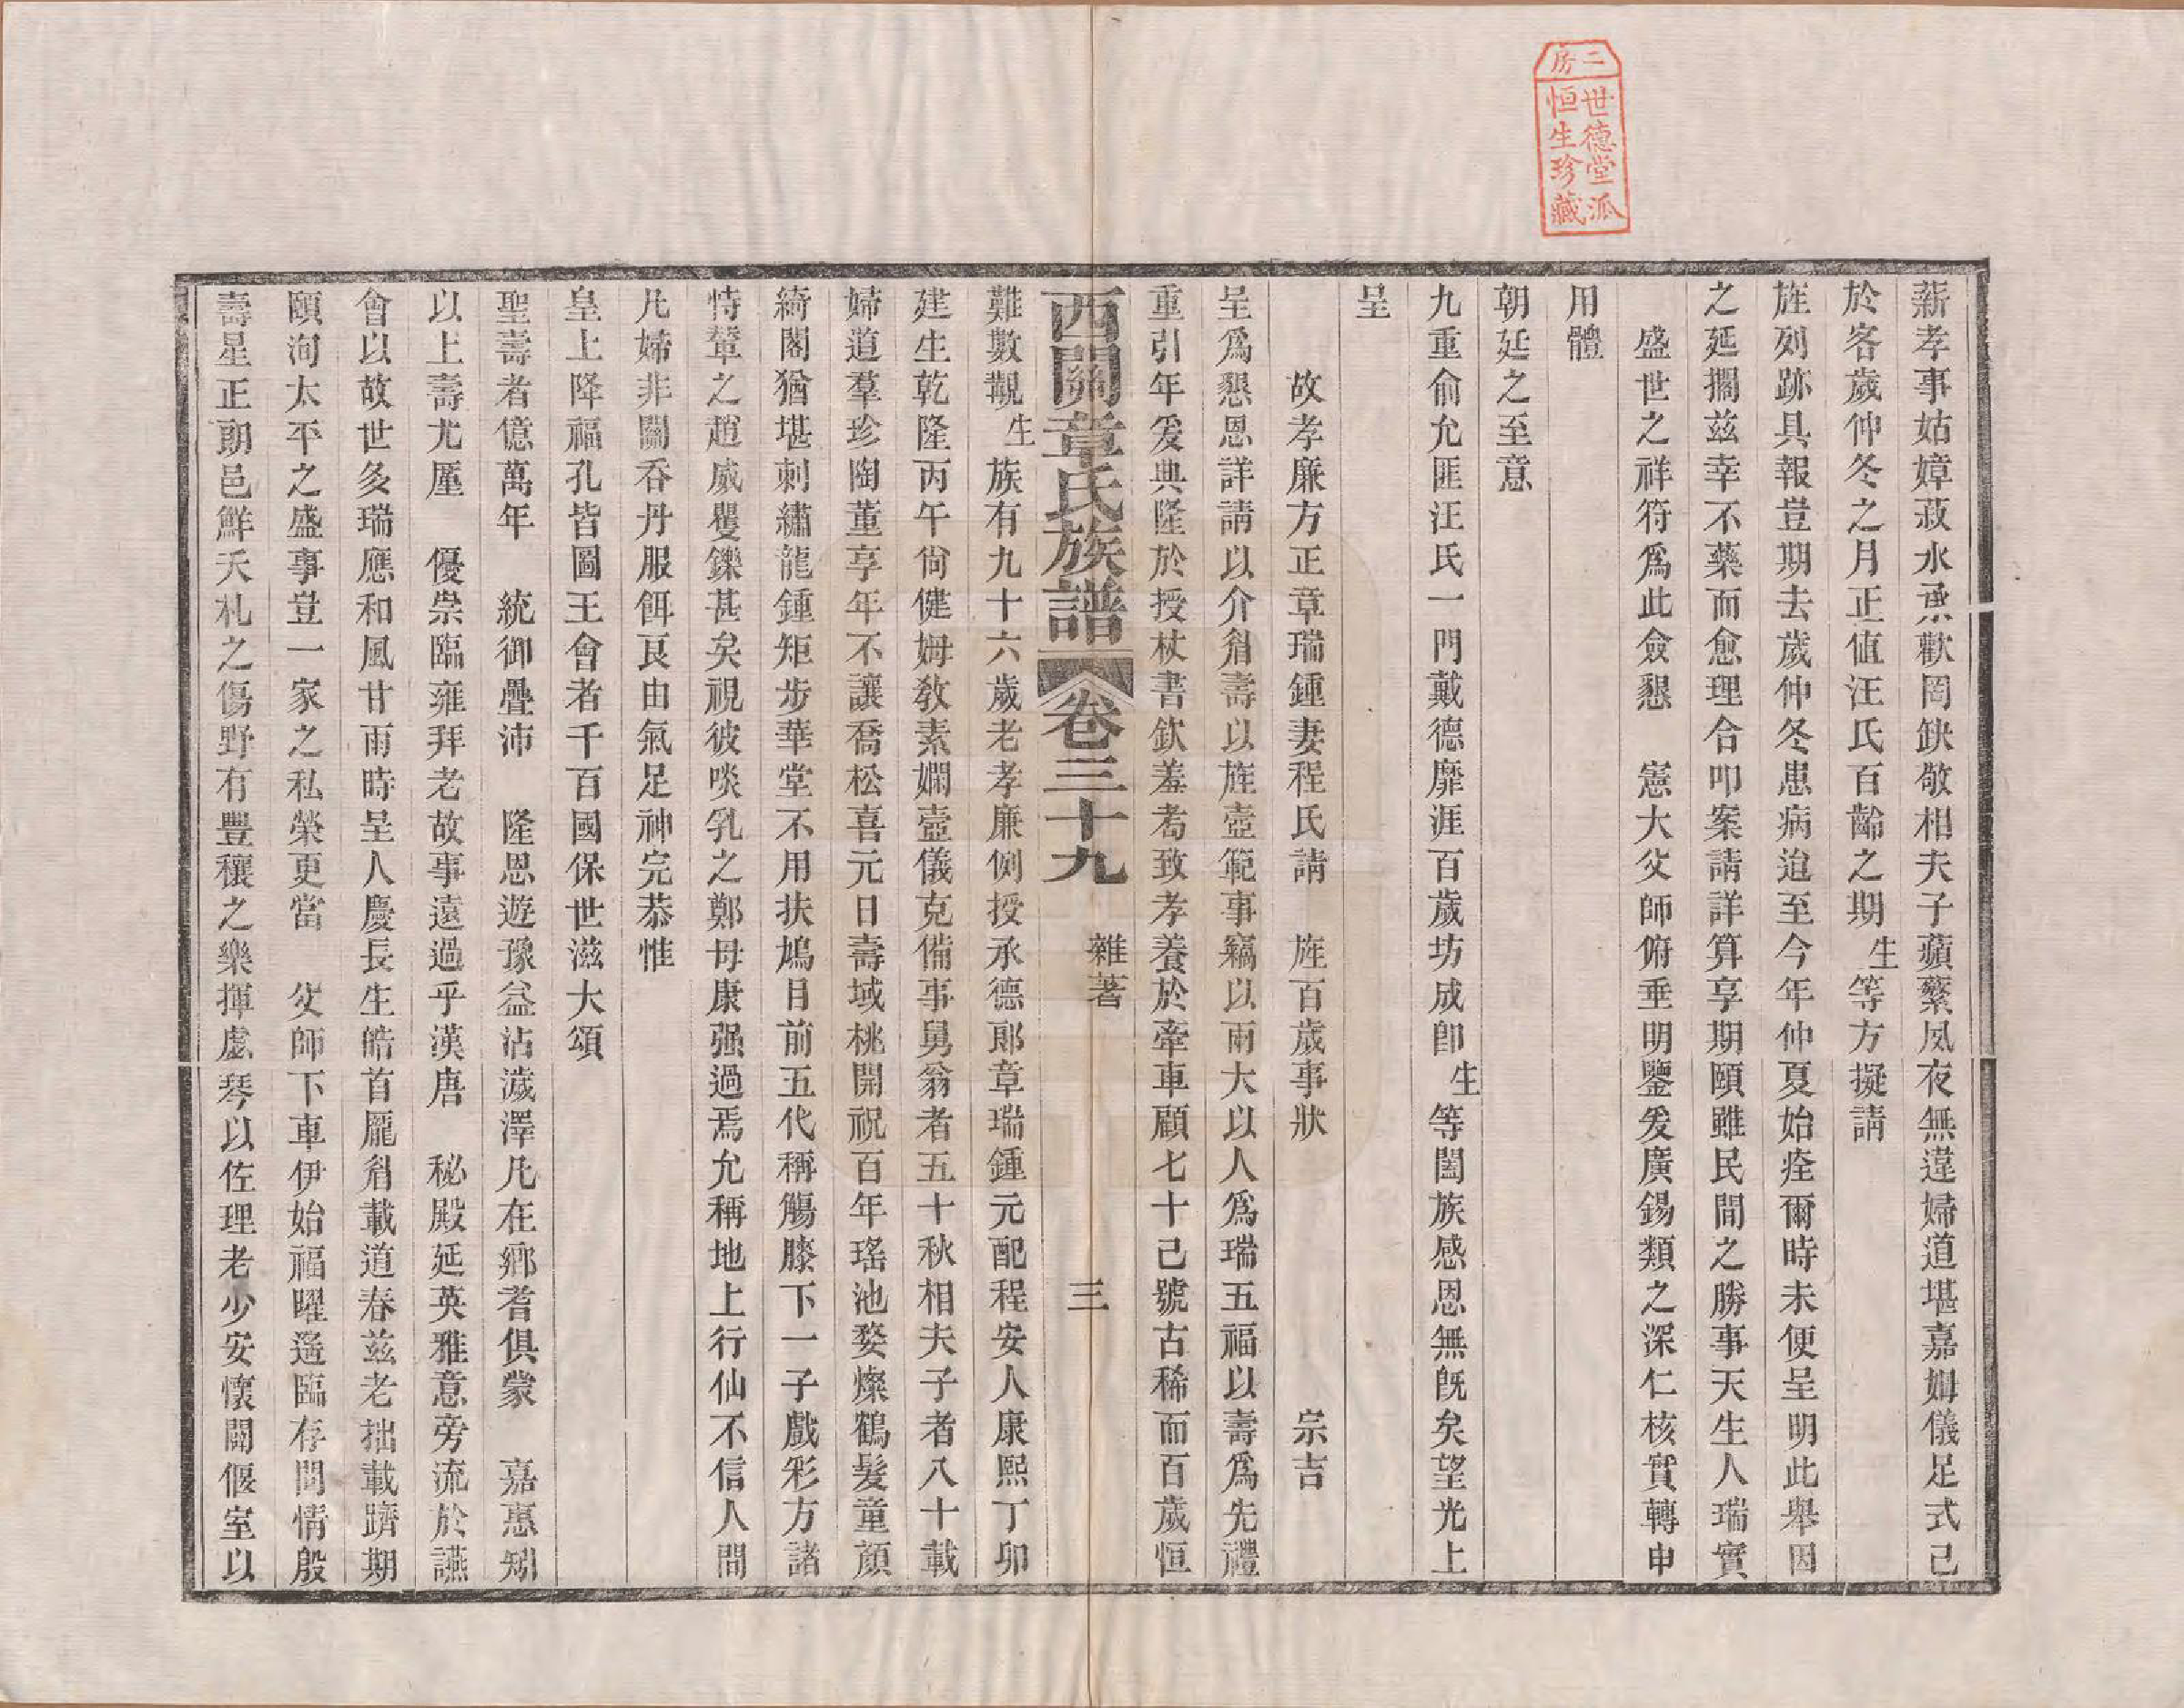 二房
世德堂派
恒生珍藏
薪孝事姑嫜菽水承歡罔缺敬相夫子蘋蘩夙夜無違婦道堪嘉姆儀足式己
於客歲仲冬之月正值汪氏百齡之期生等方擬請
旌列跡具報豈期去歲仲冬患病迨至今年仲夏始痊爾時未便呈明此舉因
之延擱兹幸不藥而愈理合叩案請詳算享期頤雖民間之勝事天生人瑞實
盛世之祥符爲此僉懇　憲大父師俯垂明鑒爰廣錫類之深仁核實轉申
用體
朝廷之至意
九重俞允匪汪氏一門戴德靡涯百歲坊成卽生等闔族感恩無旣矣望光上
呈
故孝廉方正章瑞鍾妻程氏請　旌百歲事狀　宗吉
呈爲懇恩詳請以介眉壽以旌壼範事竊以兩大以人爲瑞五福以壽爲先禮
重引年爰典隆於授杖書欽羞耇致孝養於牽車顧七十己號古稀而百歲恒
西關章氏族譜　卷三十九　雜著　三
難數覯生族有九十六歲老孝廉例授承德郎章瑞鍾元配程安人康熙丁卯
建生乾隆丙午尙健姆敎素嫻壼儀克備事舅翁者五十秋相夫子者八十載
婦道羣珍陶董享年不讓喬松喜元日壽域桃開祝百年瑤池婺燦鶴髮童顏
綺閣猶堪刺繡龍鍾矩步華堂不用扶鳩目前五代稱觴膝下一子戲彩方諸
恃輦之趙威矍鑠甚矣視彼啖乳之鄭母康强過焉允稱地上行仙不信人間
凡婦非關吞丹服餌良由氣足神完恭惟
皇上降福孔皆圖王會者千百國保世滋大頌
聖壽者億萬年　統御疊沛　隆恩遊豫益沾濊澤凡在鄉耆俱蒙　嘉惠矧
以上壽尤厪　優崇臨雍拜老故事遠過乎漢唐　秘殿延英雅意旁流於讌
會以故世多瑞應和風甘雨時呈人慶長生皓首龐眉載道春兹老拙載躋期
頤洵太平之盛事豈一家之私榮更當　父師下車伊始福曜遙臨存問情殷
壽星正朗邑鮮夭札之傷野有豐穰之樂揮處琴以佐理老少安懷閒偃室以